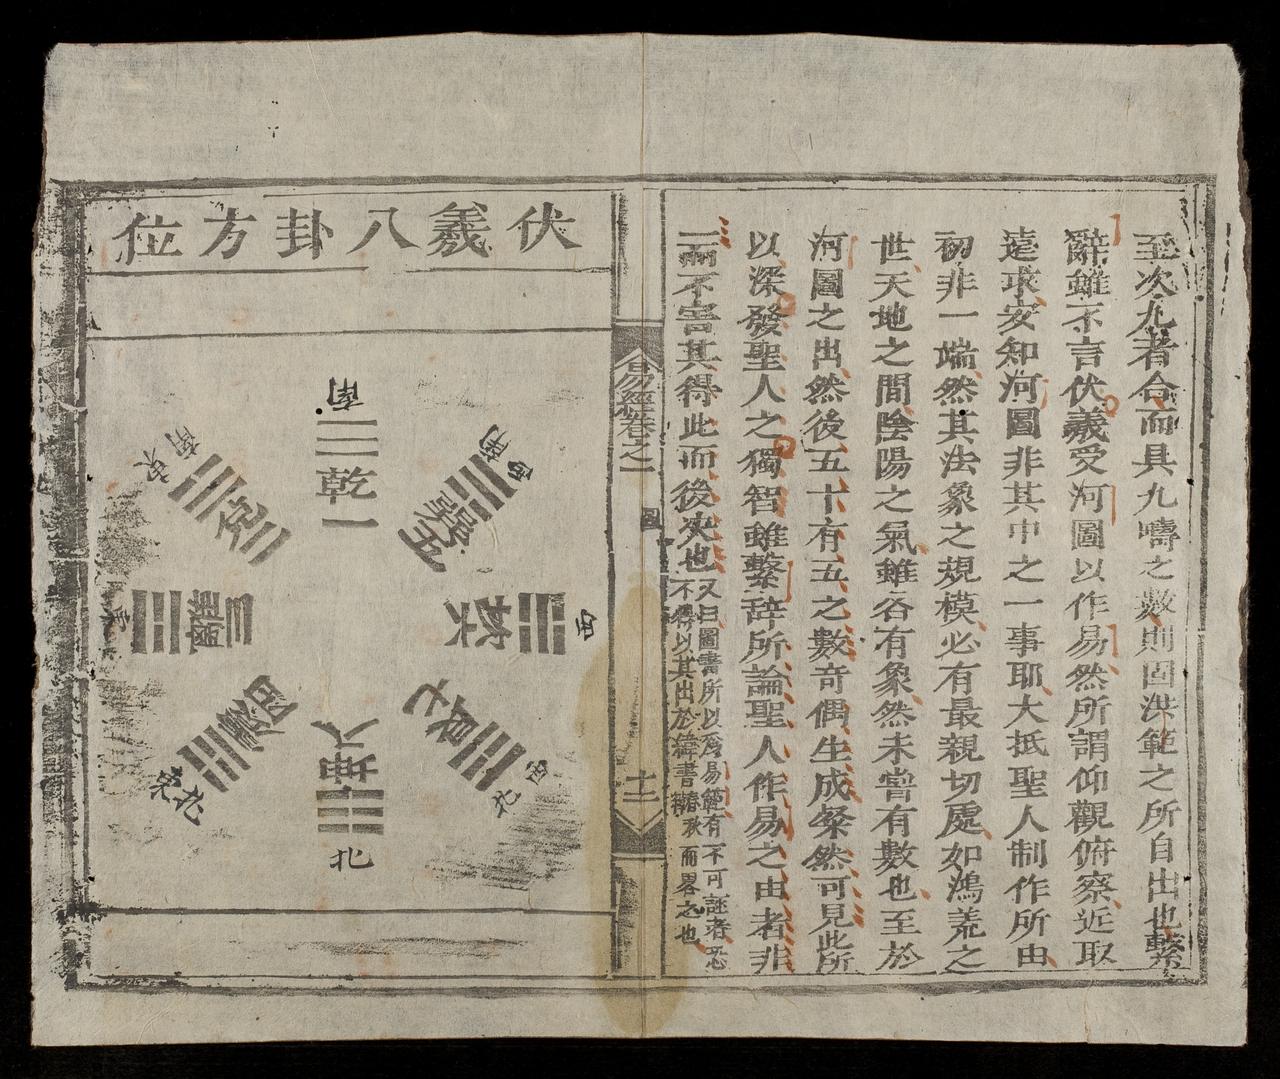 至次九者合而具九疇之數則固洪範之所自出也繫
辭雖不言伏羲受河圖以作易然所謂仰觀俯察近取
遠求安知河圖非其中之一事耶大抵聖人制作所由
初非一端然其法象之規模必有最親切處如鴻荒之
世天地之間陰陽之氣雖各有象然未嘗有數也至於
河圖之出然後五十有五之數奇偶生成粲然可見此所
以深發聖人之獨智雖繫辞所論聖人作易之由者非
一而不害其得此而後决也
又曰圖書所以為易範有不可誣者恐
不得以其出於緯書
春秋
而畧之也
易經卷之一
圖
十二
伏羲八卦方位
南
乾一
西南
巽五
西
坎六
西北
艮七
北
坤八
東北
震四
東
離三
東南
兌二